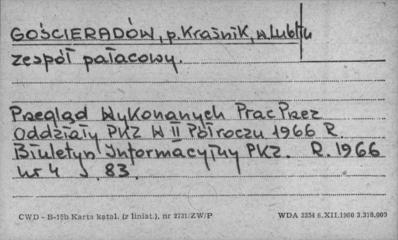 GOŚCIERADÓW, p. Kraśnik, w. Lublin
zespół pałacowy.
Przegląd Wykonanych Prac Przez
Oddziały PKZ W II Półroczu 1966 R.
Biuletyn Informacyjny PKZ. R. 1966
nr 4 s. 83.
CWD - B-15b Karta katal. (z liniat.), nr 3731/ZW/P WDA 3334 6.XII.1960 3.310.000